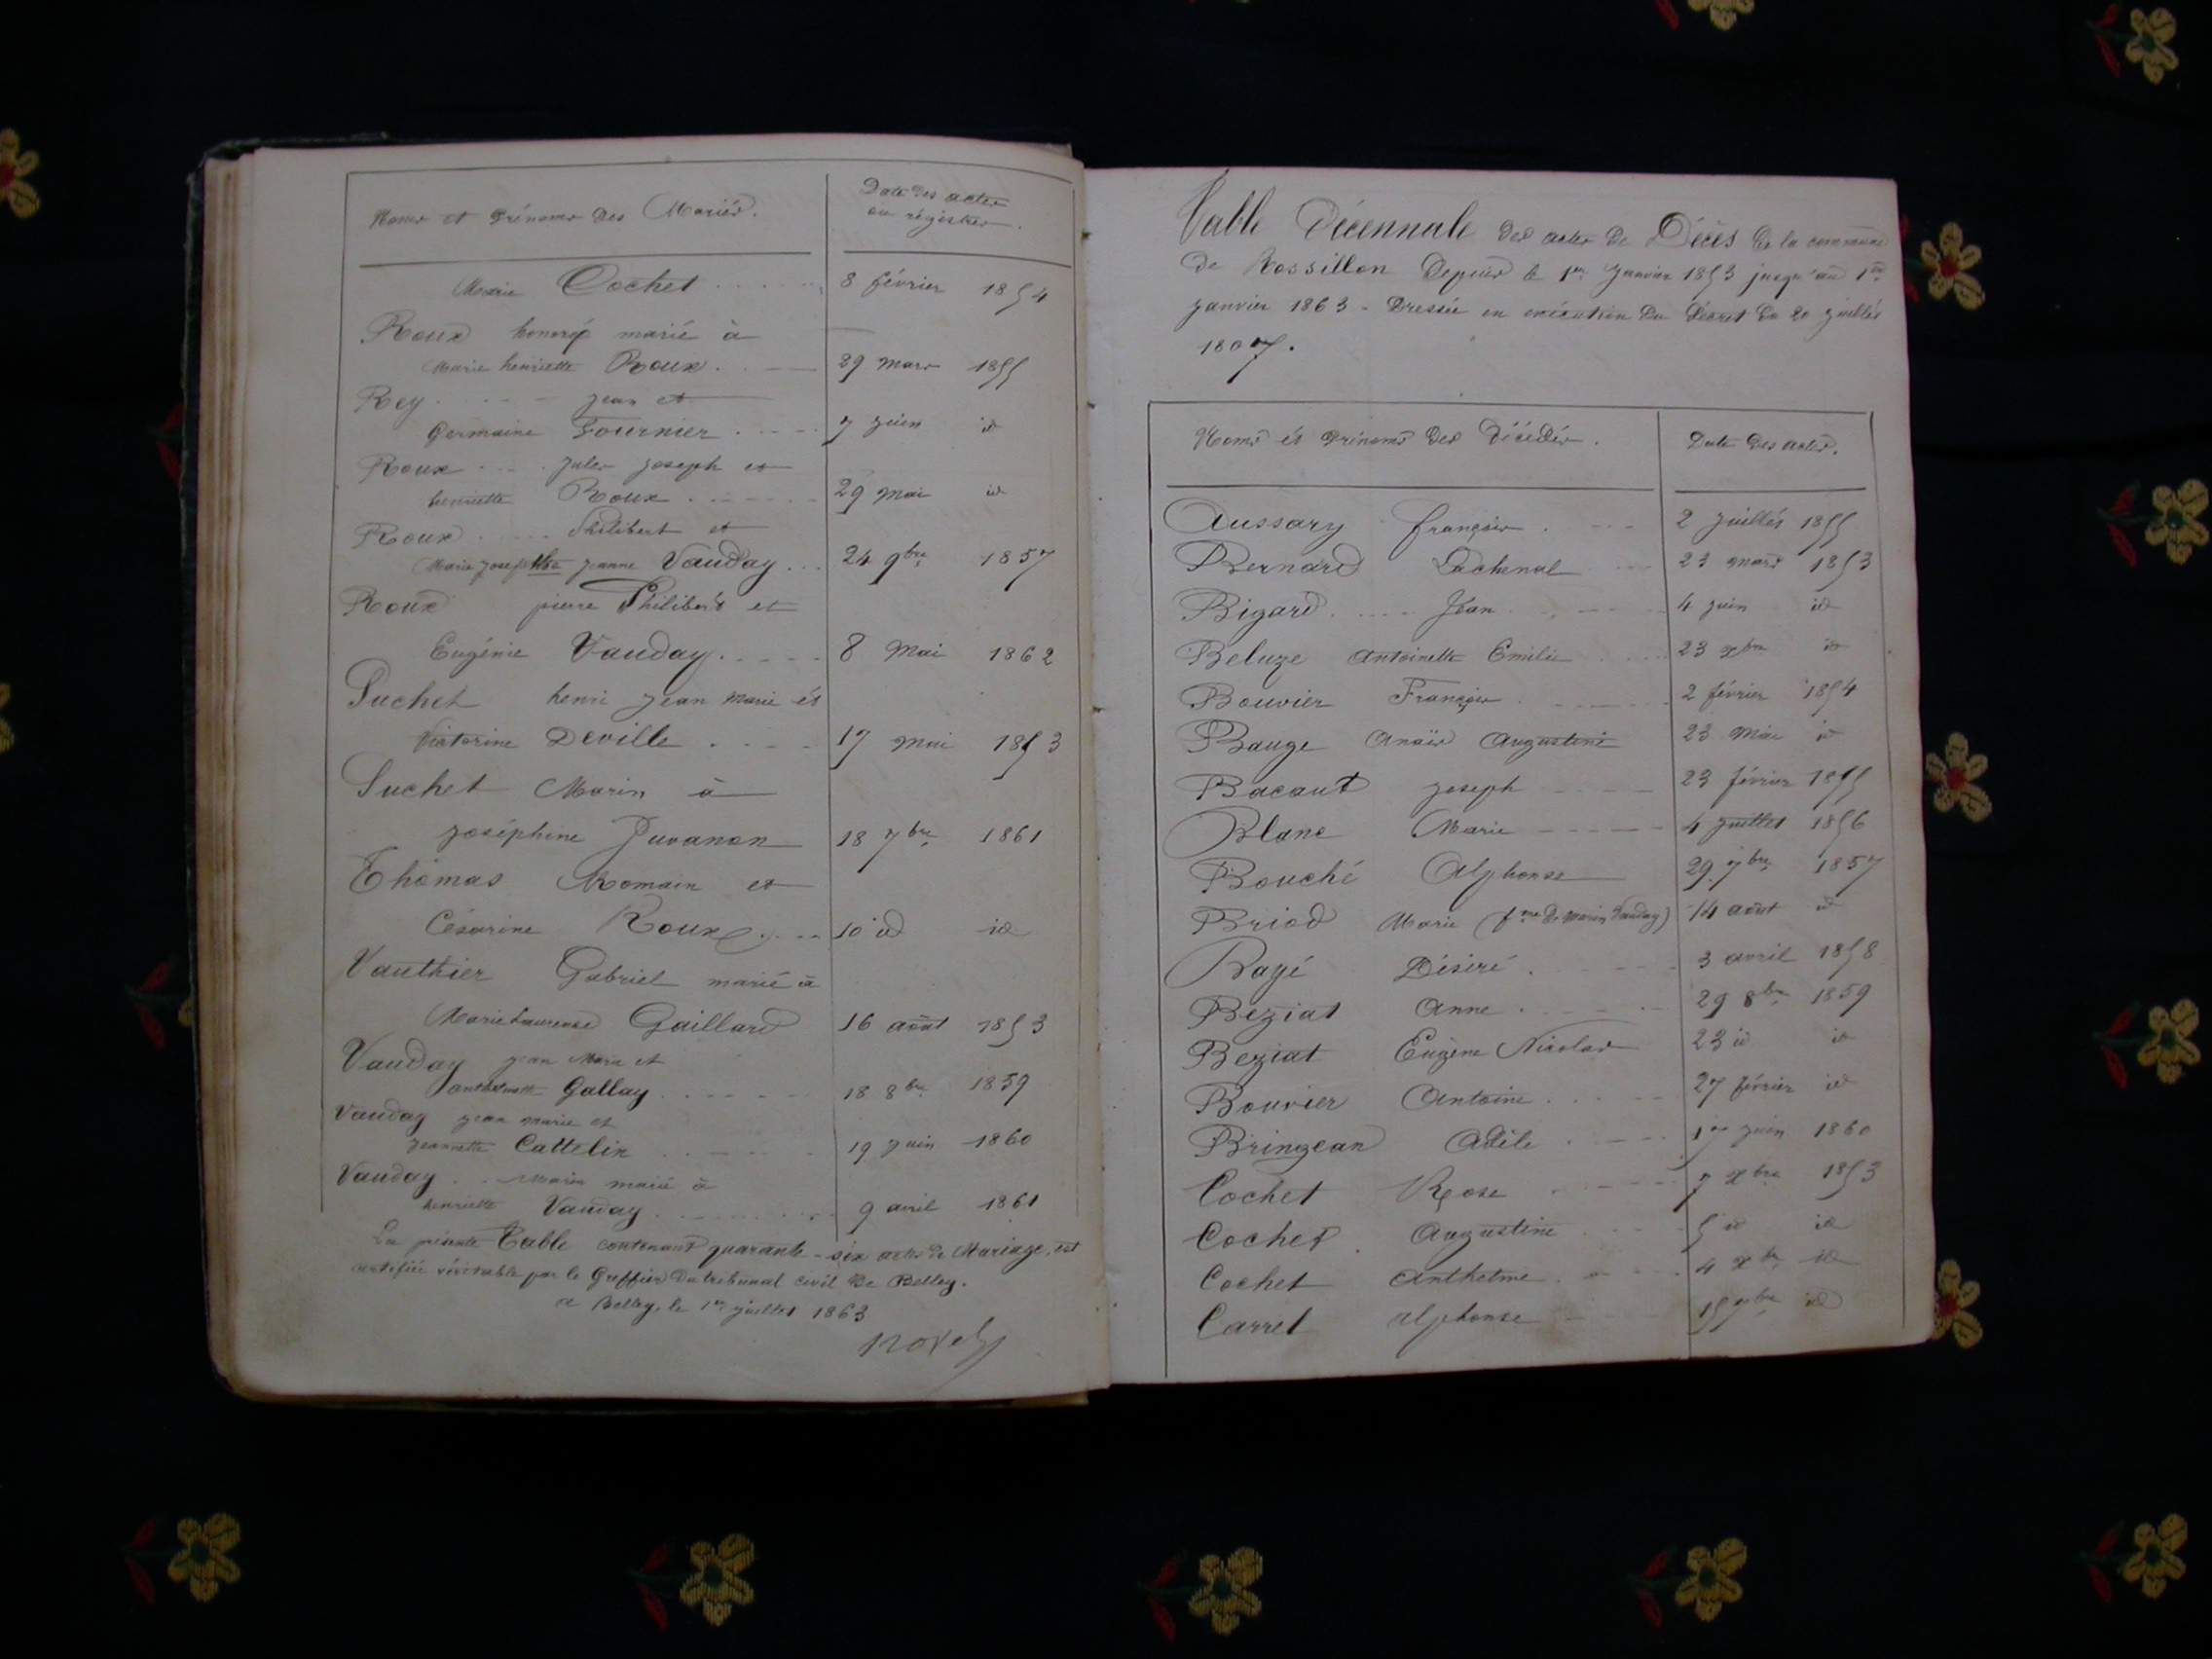 Noms et Prénoms des Mariés.
Date des actes
ou régistres.
Marie Cochet 8 février 1854
Roux honoré marié à
Marie henriette Roux. 29 mars 1855
Rey jean et
Germaine Fournier 7 juin id
Roux jules joseph et
henriette Roux 29 mai id
Roux Philibert et
Marie josephthe jeanne Vauday 24 9bre 1857
Roux pierre Philibert et
Eugénie Vauday. 8 Mai 1862
Suchet henri jean Marie et
Victorine Deville 17 mai 1853
Suchet Marin à
joséphine Juvanon 18 7bre 1861
Thomas Romain et
Césarine Roux 10 id id
Vauthier Gabriel marié à
Marie Laurence Gaillard 16 août 1853
Vauday jean Marie et
Gallay 18 8bre 1859
Vauday jean marie et
jeannette Cattelin 19 juin 1860
Vauday Marin marié à
henriette Vauday 9 avril 1861
La présente Table contenant quarante-six actes de Mariage, est
certifiée véritable par le Greffier du tribunal civil de Belley.
à Belley, le 1er juillet 1863
Table Décennale des actes de Décès de la commune
de Rossillon Depuis le 1er Janvier 1853 jusqu'au 1er
janvier 1863 - Dressée en exécution du Décret du 20 juillet
1807.
Noms et Prénoms des Décédés.
Date des actes.
Aussary françois 2 juillet 1855
Bernard Lachenal 23 mars 1853
Bigard Jean 4 juin id
Beluze Antoinette Emilie 23 xbre id
Bouvier François 2 février 1854
Bauge Anaïs Augustine 23 Mai id
Bacaut joseph 23 février 1855
Blanc Marie 4 juillet 1856
Bouché Alphonse 29 7bre 1857
Briod Marie (fme de Marin Vauday) 14 août id
Bagé Désiré 3 avril 1858
Beziat Anne 29 8bre 1859
Beziat Eugène Nicolas 23 id id
Bouvier Antoine 27 février id
Bringean Adèle 1er juin 1860
Cochet Rose 7 xbre 1853
Cochet Augustine 5 id id
Cochet Anthelme 4 xbre id
Carrel alphonse 15 7bre id